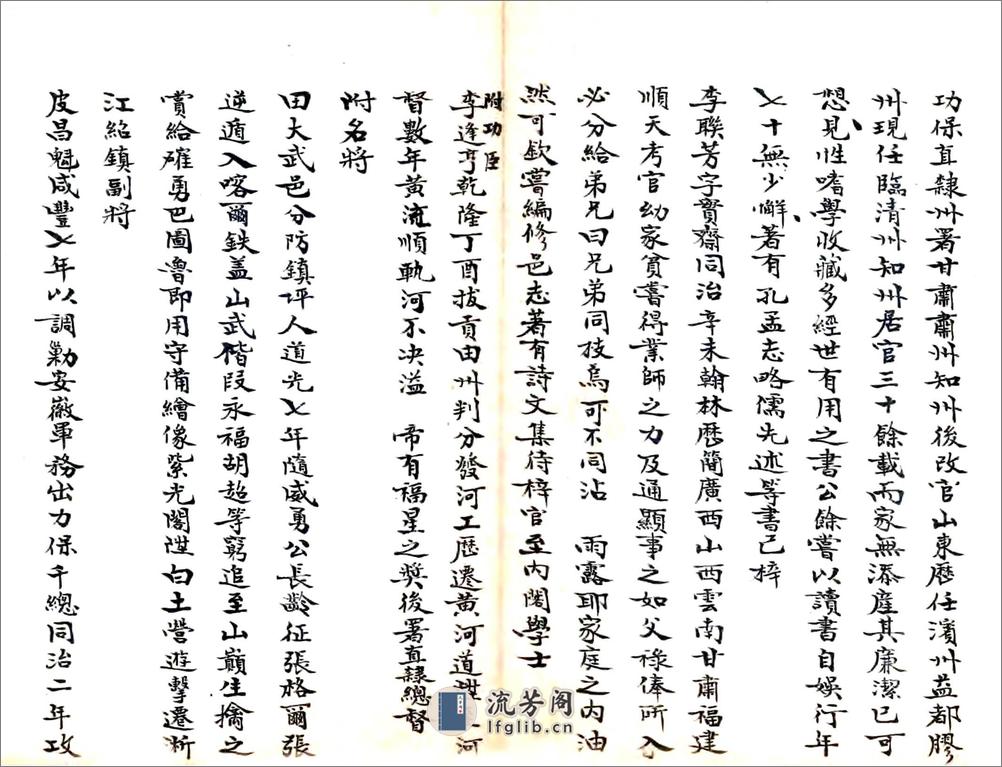 功保直隸州署甘肅肅州知州後改官山東歷任濱州益都膠
州現任臨清州知州居官三十餘載而家無添產其廉潔已可
想見性嗜學收藏多經世有用之書公餘嘗以讀書自娛行年
七十無少懈著有孔孟志略儒先述等書已梓
李聯芳字實齋同治辛未翰林歷簡廣西山西雲南甘肅福建
順天考官幼家貧嘗得業師之力及通顯事之如父祿俸所入
必分給弟兄曰兄弟同技焉可不同沾　雨露耶家庭之內油
然可欽嘗編修邑志著有詩文集待梓官至內閣學士
附功臣
李逢亨乾隆丁酉拔貢由州判分發河工歷遷黃河道 河
督數年黃流順軌河不决溢　帝有福星之獎後署直隸總督
附名將
田大武邑分防鎮坪人道光七年隨威勇公長齡征張格爾張
逆遁入喀爾鉄盖山武偕段永福胡超等窮追至山巔生擒之
賞給確勇巴圖魯即用守備繪像紫光閣陞白土營遊擊遷浙
江紹鎮副將
皮昌魁咸豐七年以調勦安徽軍務出力保千總同治二年攻
流芳阁
lfglib.cn